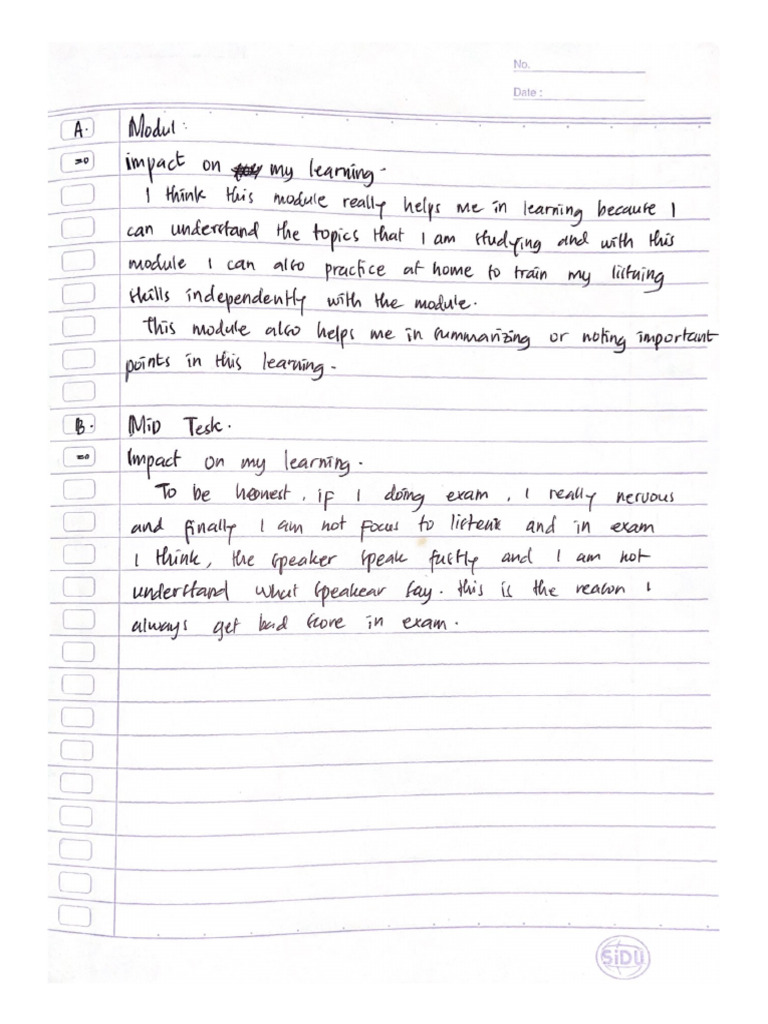 No.
Date :
A. Modul :
=> impact on my learning.
I think this module really helps me in learning because I
can understand the topics that I am studying and with this
module I can also practice at home to train my listning
skills independently with the module.
This module also helps me in summarizing or noting important
points in this learning.
B. MiD Tesk.
=> Impact on my learning.
To be honest, if I doing exam, I really nervous
and finally I am not focus to listenr and in exam
I think, the speaker speak fustly and I am not
understand what speakear say. this is the reason I
always get bad score in exam.
SiDU